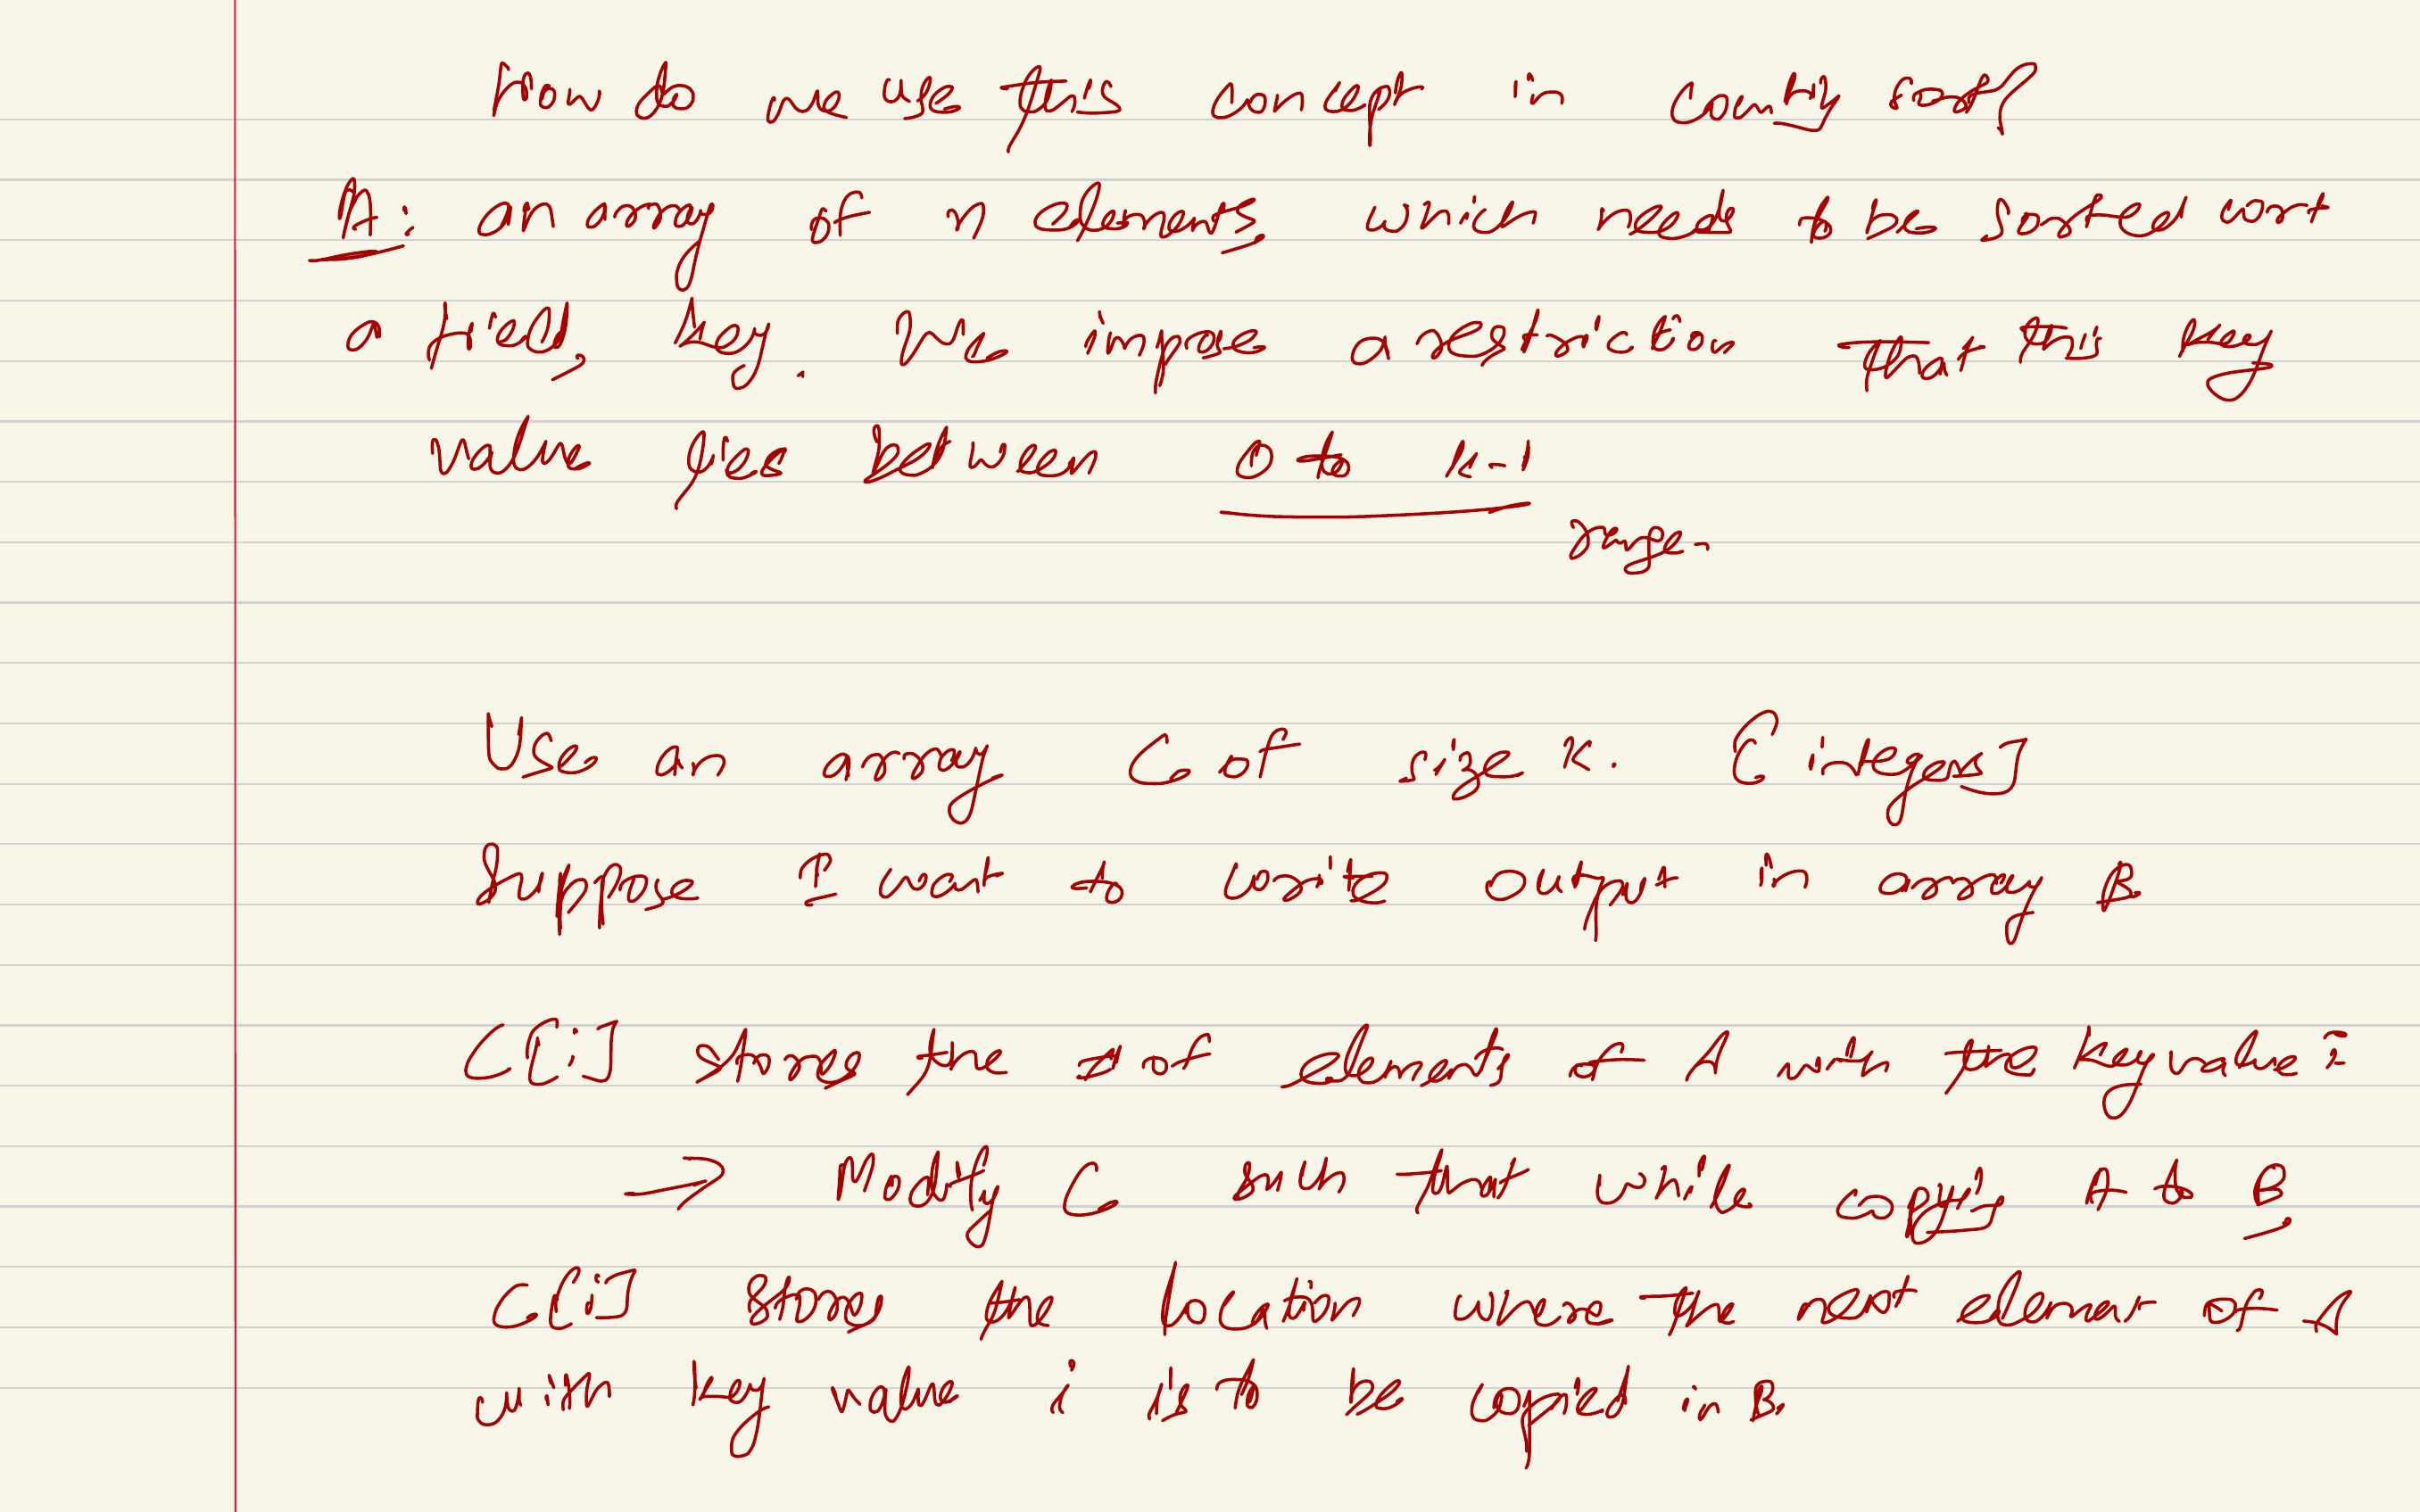 How do we use this concept in counting sort?
A: an array of n elements, which needs to be sorted wrt
a field, key. We impose a restriction that this key
value lies between 0 to k-1
range.
Use an array C of size k. [integers]
Suppose I want to write output in array B.
C[i] stores the # of elements of A with the key value =
→ Modify C such that while copying A to B,
C[i] stores the location where the next element of A
with key value i is to be copied in B.